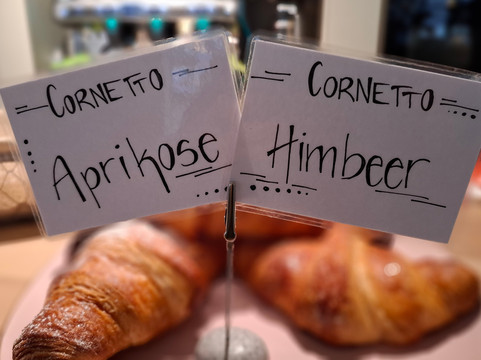 CORNETTO
Aprikose
CORNETTO
Himbeer